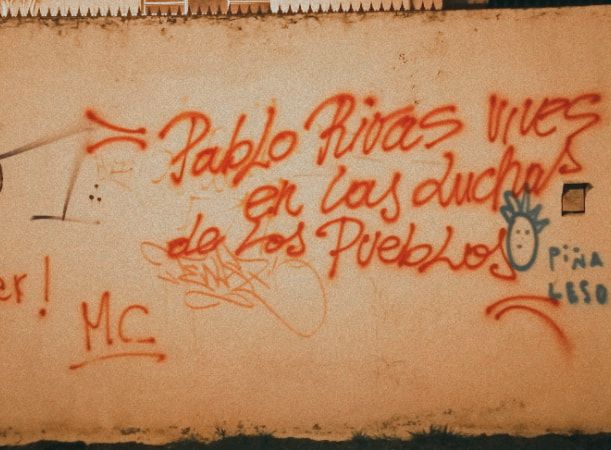 Pablo Rivas vives
en las Luchas
de Los Pueblos
PIÑA
LESO
er!
MC